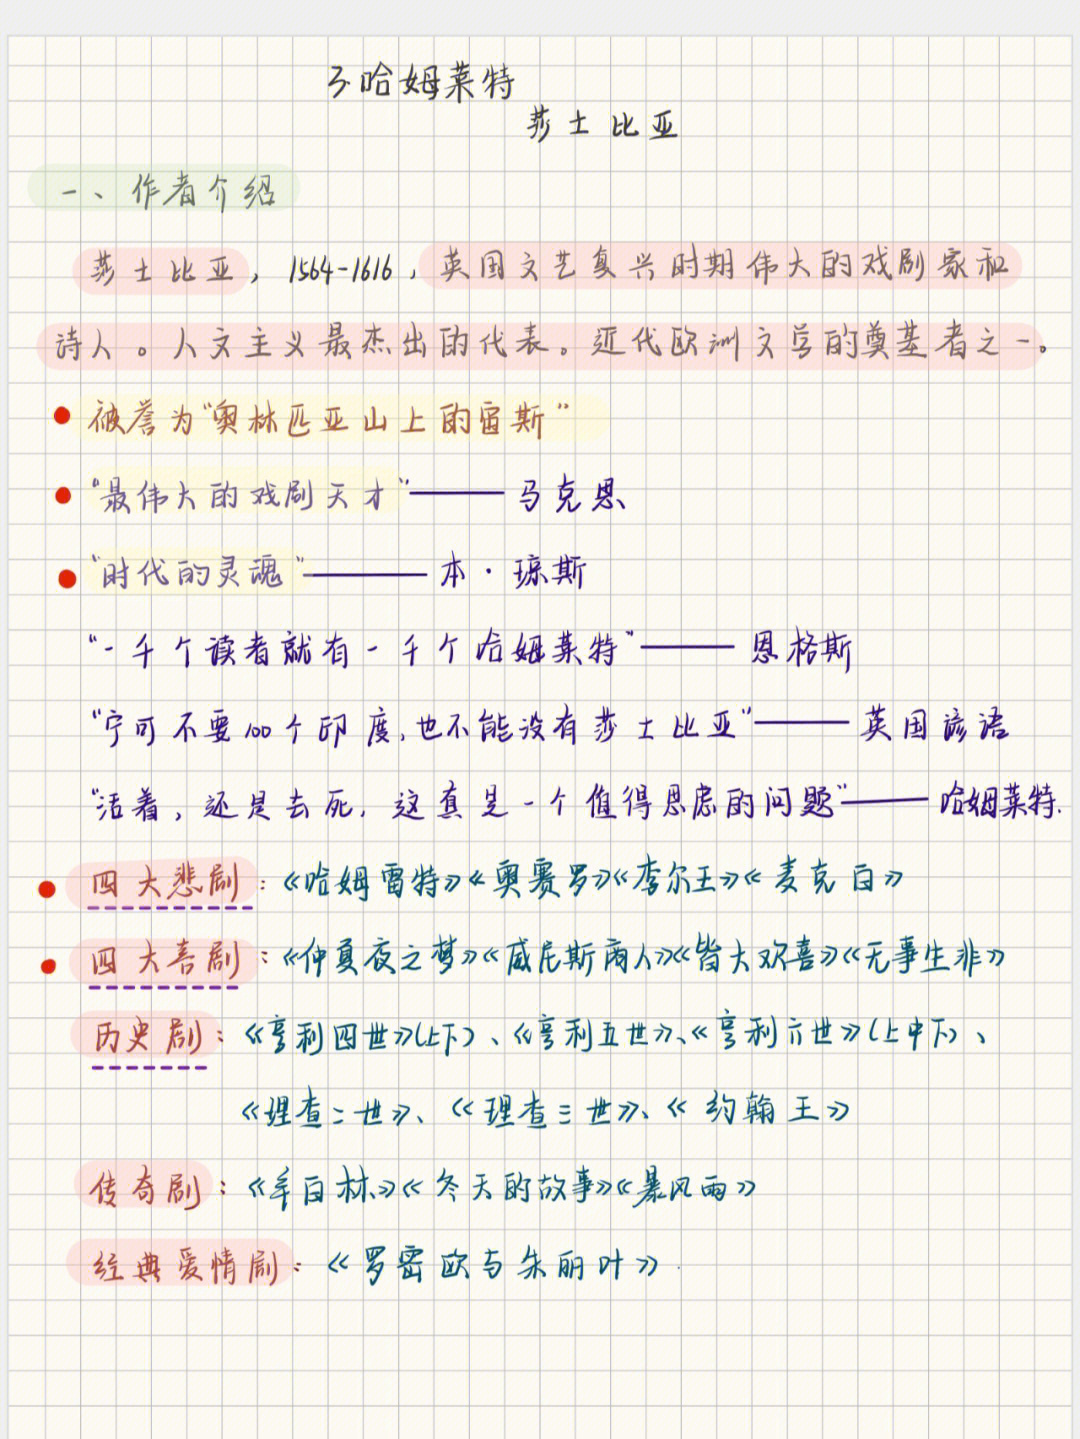 3哈姆莱特
莎士比亚
一、作者介绍
莎士比亚，1564-1616，英国文艺复兴时期伟大的戏剧家和
诗人。人文主义最杰出的代表。近代欧洲文学的奠基者之一。
被誉为“奥林匹亚山上的宙斯”
“最伟大的戏剧天才”——马克思
“时代的灵魂”——本·琼斯
“一千个读者就有一千个哈姆莱特”——恩格斯
“宁可不要100个印度，也不能没有莎士比亚”——英国谚语
“活着，还是去死，这真是一个值得思虑的问题”——哈姆莱特.
四大悲剧：《哈姆雷特》《奥赛罗》《李尔王》《麦克白》
四大喜剧：《仲夏夜之梦》《威尼斯商人》《皆大欢喜》《无事生非》
历史剧：《亨利四世》(上下)、《亨利五世》、《亨利六世》(上中下)、
《理查二世》、《理查三世》、《约翰王》
传奇剧：《辛白林》《冬天的故事》《暴风雨》
经典爱情剧：《罗密欧与朱丽叶》.